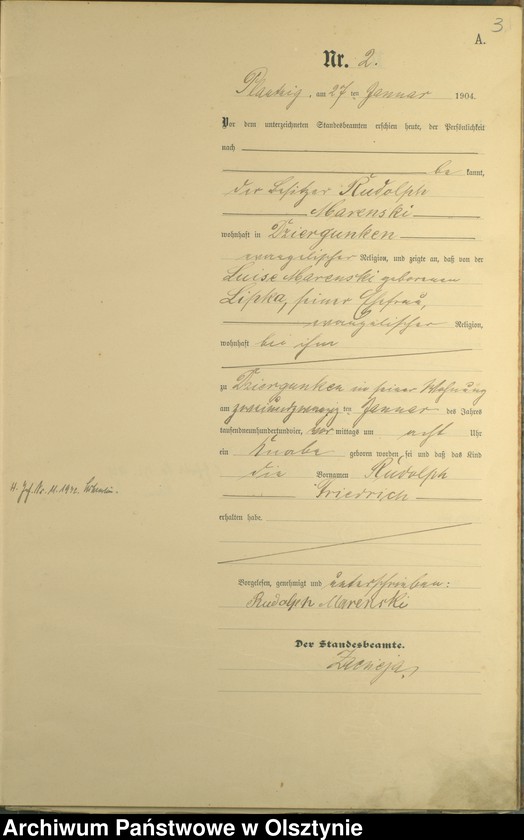 3
A.
Nr. 2.
am 27ten Januar 1904.
Vor dem unterzeichneten Standesbeamten erschien heute, der Persönlichkeit
nach
be kannt,
der Besitzer Rudolph
Marenski
wohnhaft in Dziergunken
evangelischer Religion, und zeigte an, daß von der
Luise Marenski geborenen
Lipka, seiner Ehefrau,
evangelischer Religion,
wohnhaft bei ihm
zu Dziergunken in seiner Wohnung
am ten Januar des Jahres
tausendneunhundertundvier, vor mittags um acht Uhr
ein Knabe geboren worden sei und daß das Kind
die Vornamen Rudolph
Friedrich
erhalten habe.
Vorgelesen, genehmigt und unterschrieben:
Rudolph Marenski
Der Standesbeamte.
Archiwum Państwowe w Olsztynie